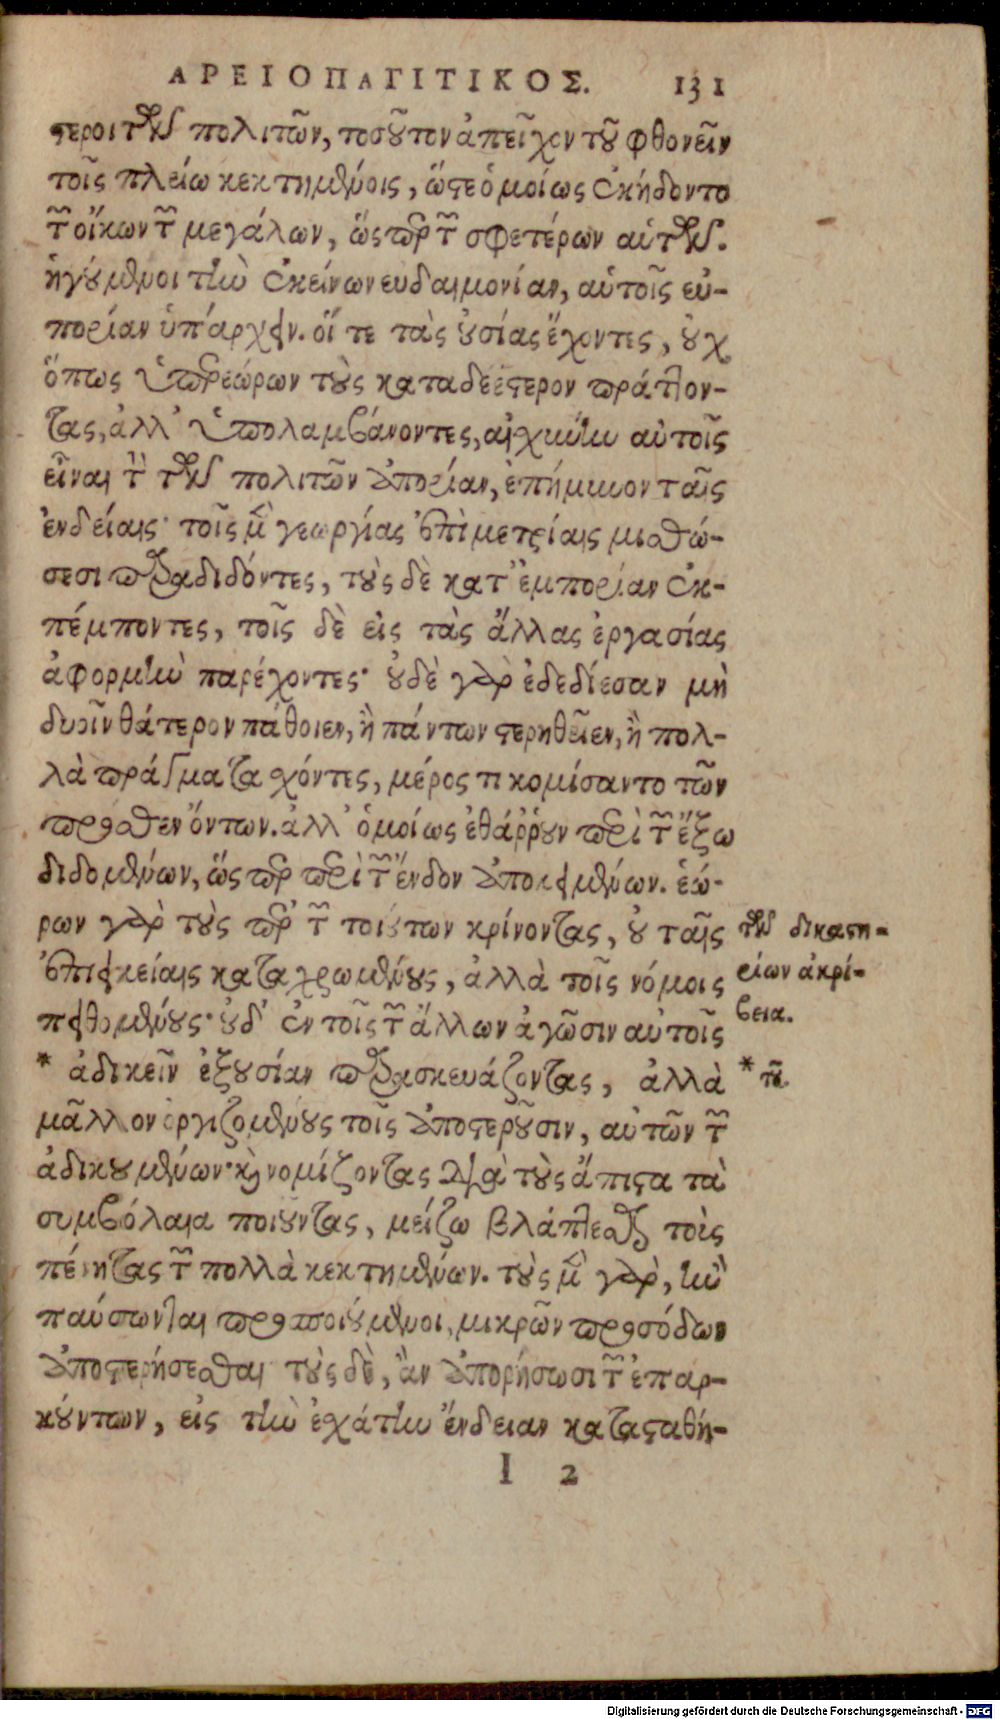 ΑΡΕΙΟΠΑΓΙΤΙΚΟΣ. 131
τεροι τῶν πολιτῶν, τοσοῦτον ἀπεῖχον τοῦ φθονεῖν
τοῖς πλείω κεκτημένοις, ὥστε ὁμοίως ἐκήδοντο
τῶν οἴκων τῶν μεγάλων, ὥσπερ τῶν σφετέρων αὑτῶν.
ἡγούμενοι τὴν ἐκείνων ευδαιμονίαν, αὑτοῖς εὐ-
πορίαν ὑπάρχειν. οἵ τε τὰς οὐσίας ἔχοντες, οὐχ
ὅπως ὑπερεώρων τοὺς καταδεέστερον πράττον-
τας, ἀλλ' ὑπολαμβάνοντες, αἰσχύνην αὑτοῖς
εἶναι τὴν τῶν πολιτῶν ἀπορίαν, ἐπήμυνον ταῖς
ἐνδείαις· τοῖς μὲν γεωργίας ἐπὶ μετρίαις μισθώ-
σεσι παραδιδόντες, τοὺς δὲ κατ' ἐμπορίαν ἐκ-
πέμποντες, τοῖς δὲ εἰς τὰς ἄλλας ἐργασίας
ἀφορμὴν παρέχοντες· οὐδὲ γὰρ ἐδεδίεσαν μὴ
δυοῖν θάτερον πάθοιεν, ἢ πάντων στερηθεῖεν, ἢ πολ-
λὰ πράγματα σχόντες, μέρος τι κομίσαντο τῶν
προσθεν ὄντων. ἀλλ' ὁμοίως ἐθάῤῥουν περὶ τῶν ἔξω
διδομένων, ὥσπερ περὶ τῶν ἔνδον ἀποκειμένων. ἑώ-
ρων γὰρ τοὺς περὶ τῶν τοιούτων κρίνοντας, οὐ ταῖς
ἐπιεικείαις καταχρωμένους, ἀλλὰ τοῖς νόμοις
πειθομένους· οὐδ' ἐν τοῖς τῶν ἄλλων ἀγῶσιν αὑτοῖς
* ἀδικεῖν ἐξουσίαν παρασκευάζοντας, ἀλλὰ
μᾶλλον ὀργιζομένους τοῖς ἀποστεροῦσιν, αὐτῶν τῶν
ἀδικουμένων· καὶ νομίζοντας διὰ τοὺς ἄπιστα τὰ
συμβόλαια ποιοῦντας, μείζω βλάπτεσθαι τοὺς
πένητας τῶν πολλὰ κεκτημένων. τοὺς μὲν γὰρ, ἢν
παύσωνται προϊσούμενοι, μικρῶν προσόδων
ἀποστερήσεσθαι τοὺς δὲ, ἂν ἀπορήσωσι τῶν ἐπαρ-
κούντων, εἰς τὴν ἐσχάτην ἔνδειαν κατασταθή-
I 2
τῶν δικαστη-
ρίων ἀκρί-
βεια.
* τῷ.